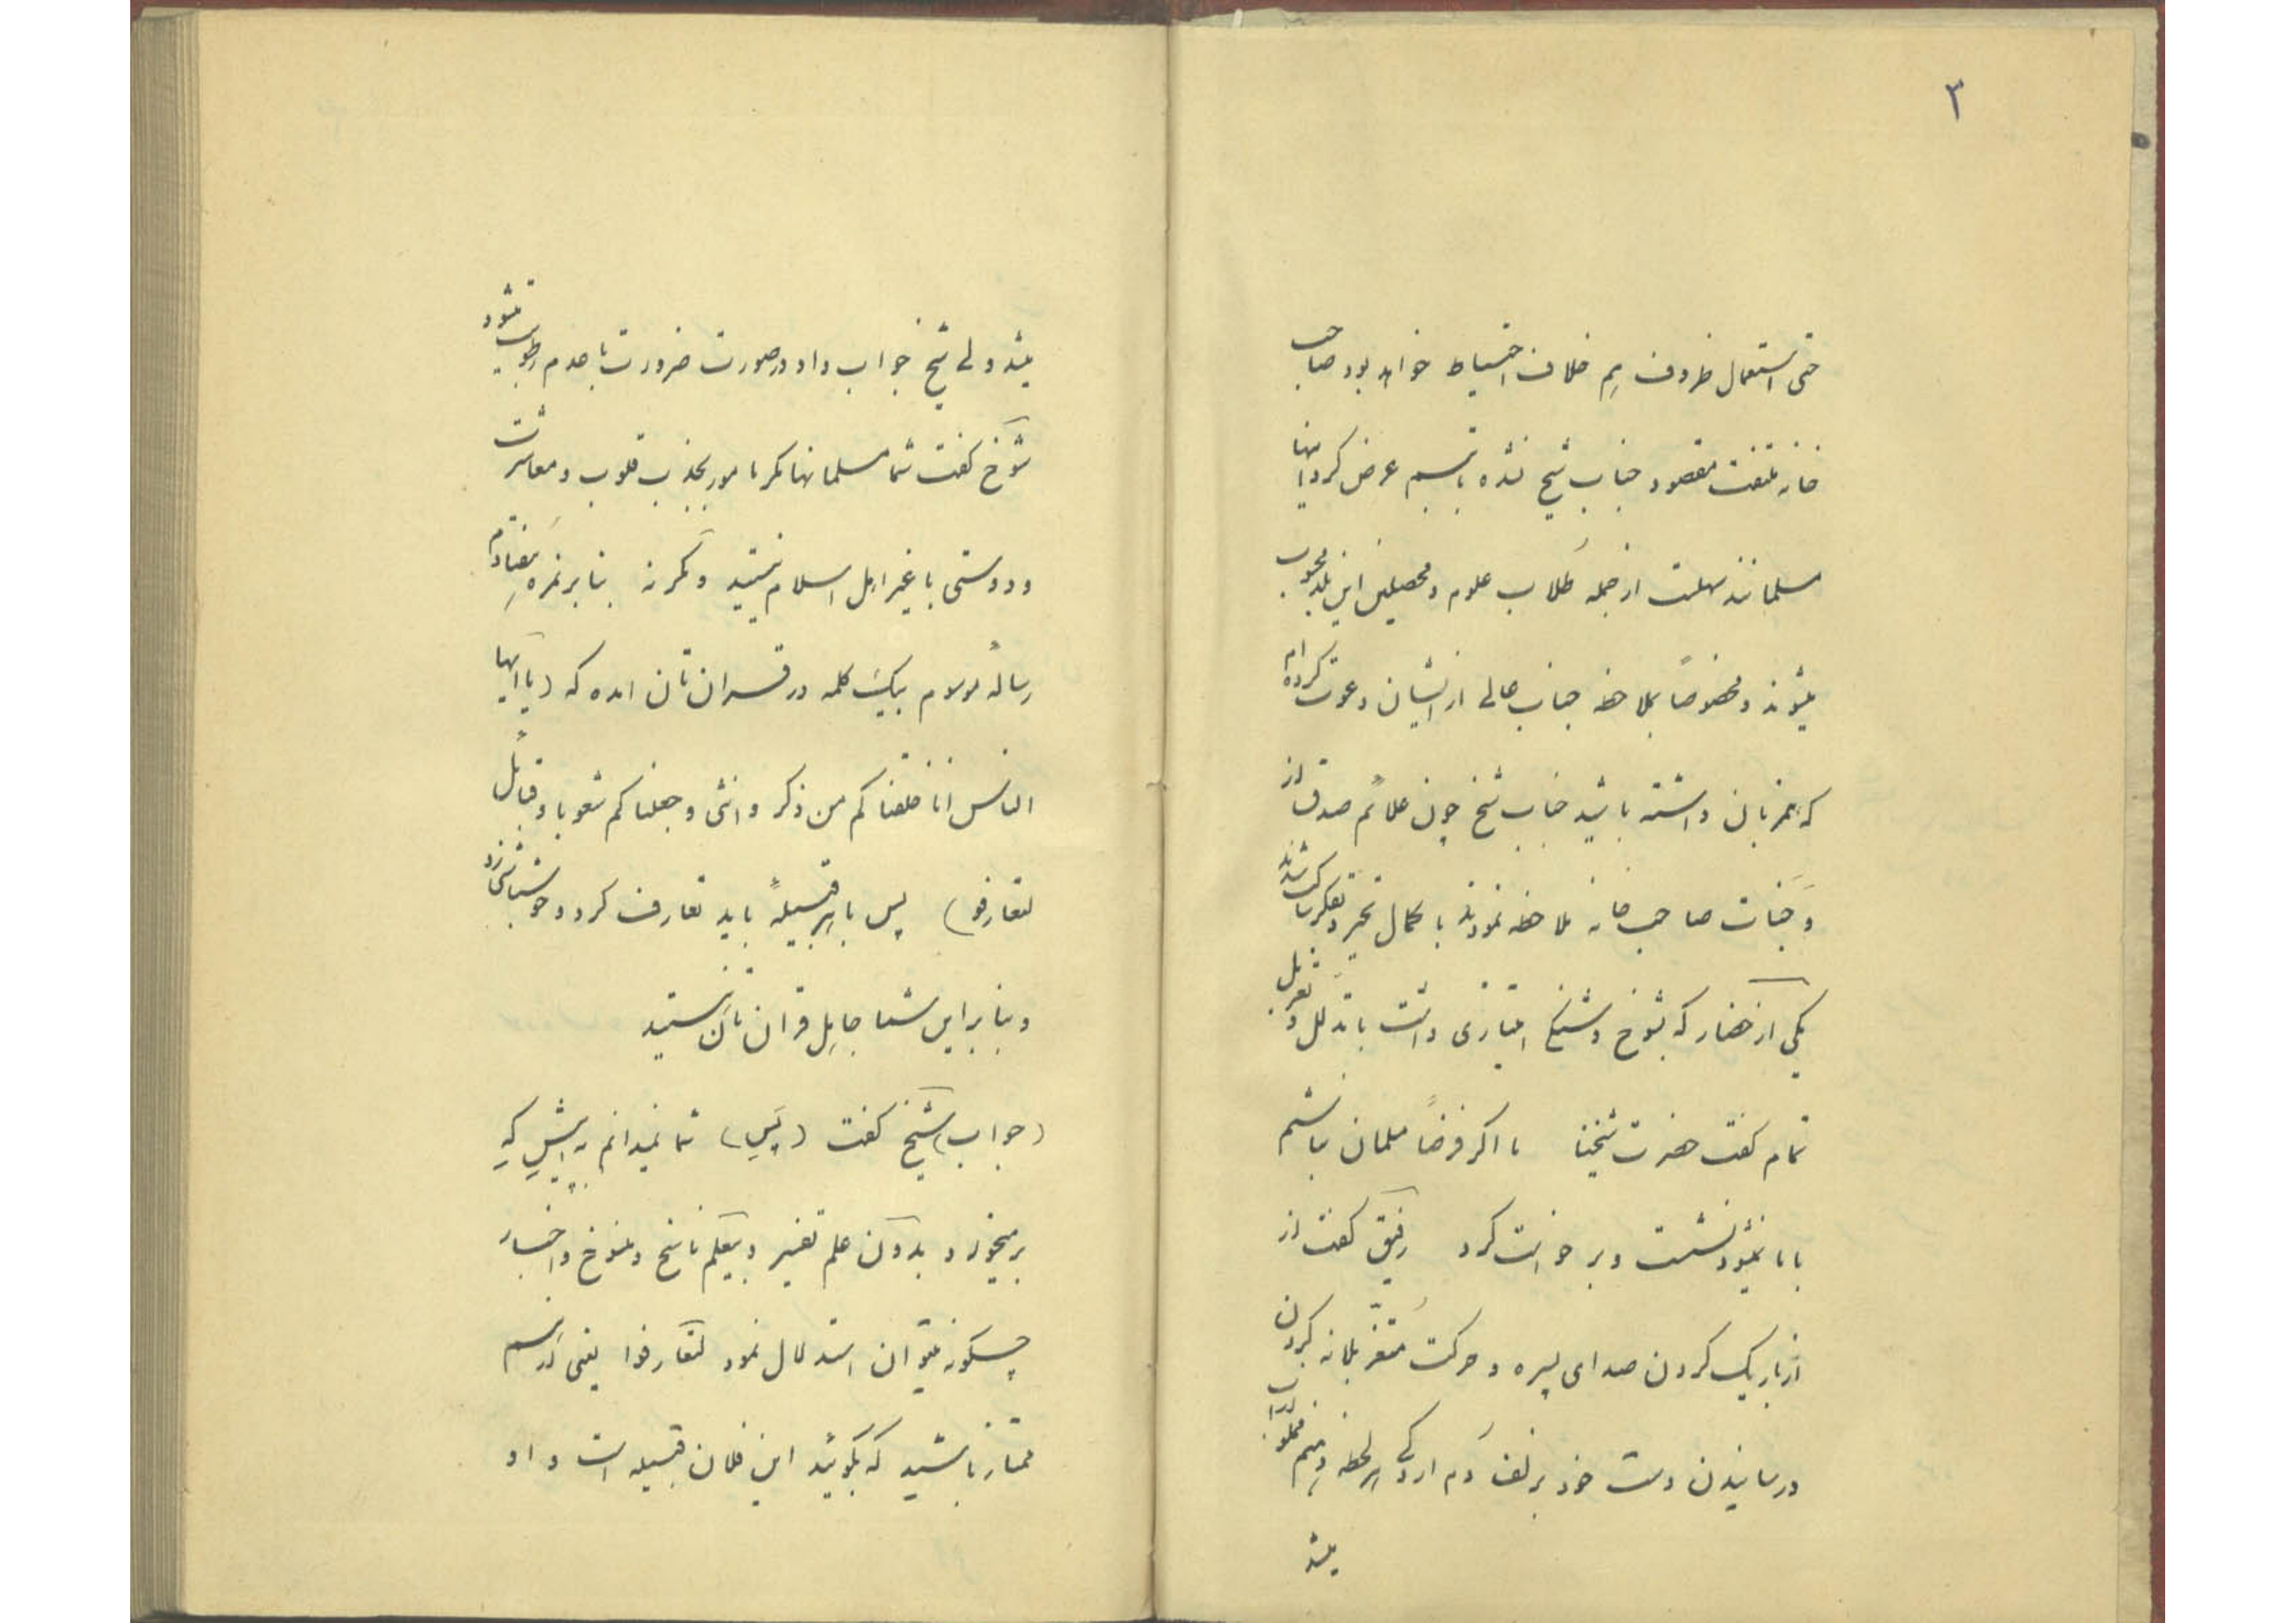 ۳
حتی استعمال ظروف هم خلاف احتیاط خواهد بود صاحب
خانه ملتفت مقصود جناب شیخ نشده با تبسم عرض کرد اینها
مسلمانند سهلست از جمله طلاب علوم و محصلین این بلد محسوب
میشوند و مخصوصاً بملاحظه جناب عالی از ایشان دعوت کرده‌ام
که همزبان داشته باشید جناب شیخ چون علائم صدق از
وَجَنات صاحب خانه ملاحظه نمودند با کمال تحیر و تفکر ساکت شدند
یکی از حضار که بشوخ و شنگی امتیازی داشت با تدلل و تغزل
تمام گفت حضرت شیخنا ما اگر فرضاً مسلمان نباشیم
با ما نمیشود نشست و برخواست کرد رفیق گفت از
از باریک کردن صدای پسره و حرکت متغزلانه کردن
و رسانیدن دست خود بزلف دم اردکی هر لحظه دلم آب
میشد
میشد ولی شیخ جواب داد در صورت ضرورت با عدم رطوبت میشود
شوخ گفت شما مسلمانها مگر مامور بجذب قلوب و معاشرت
و دوستی با غیر اهل اسلام نیستید وگرنه بنا بر نمره هفتادم
رساله مولام بیک کلمه در قران تان امده که (یا ایها
الناس انا خلقناکم من ذکر و انثی و جعلناکم شعوبا و قبائل
لتعارفو) پس با هر قبیلهٔ باید تعارف کرد و خوشباشی زد
و بنا براین شما جاهل قران تان هستید
(جواب) شیخ گفت (پسی) شما نمیدانم به آتش که
برمیخورد و بدون علم تفسیر و بیعلم ناسخ و منسوخ و اخبار
چگونه میتوان استدلال نمود لتعارفوا یعنی در اسم
ممتاز باشید که بگوئید این فلان قبیله است و او